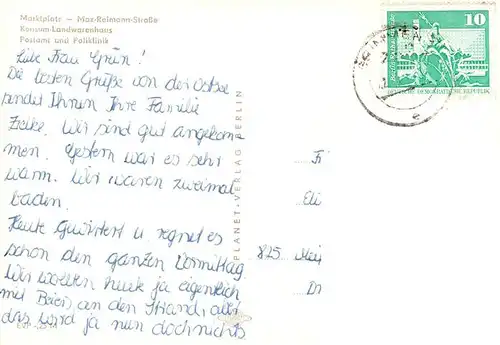 Marktplatz — Max-Reimann-Straße
Konsum-Landwarenhaus
Postamt und Poliklinik
Liebe Frau Grün!
Die besten Grüße von der Ostsee
sendet Ihnen Ihre Familie
Wir sind gut angekom-
men. Gestern war es sehr
warm. Wir waren zweimal
baden.
Heute gewittert u. regnet es
schon den ganzen Vormittag.
Wir wollten heute ja eigentlich
mit Beier an den Strand, aber
das wird ja nun doch nichts
PLANET-VERLAG BERLIN
10
DEMOKRATISCHE REPUBLIK
e
Eli
825